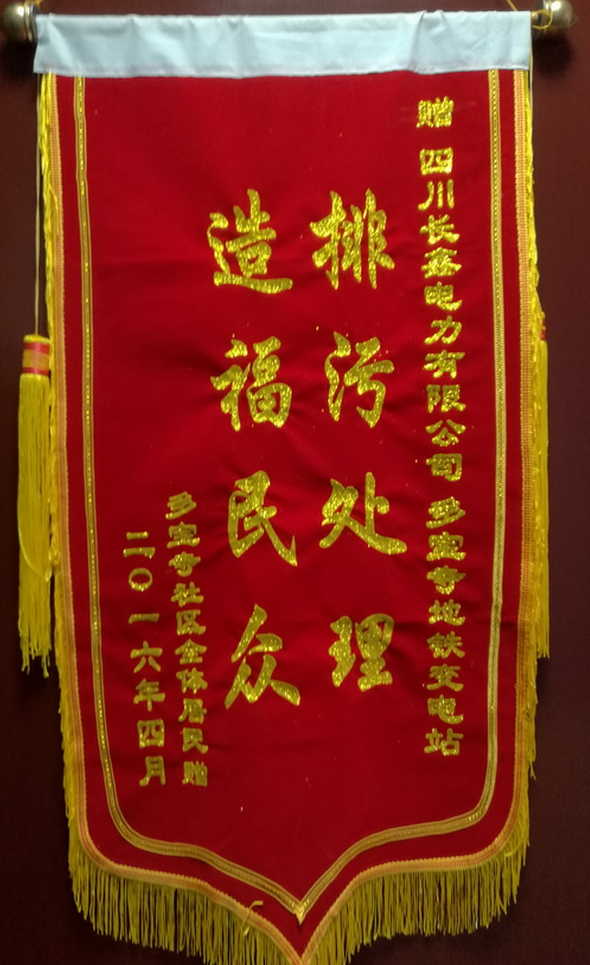 赠 四川长鑫电力有限公司 多宝寺地铁变电站
排污处理
造福民众
多宝寺社区全体居民赠
二〇一六年四月